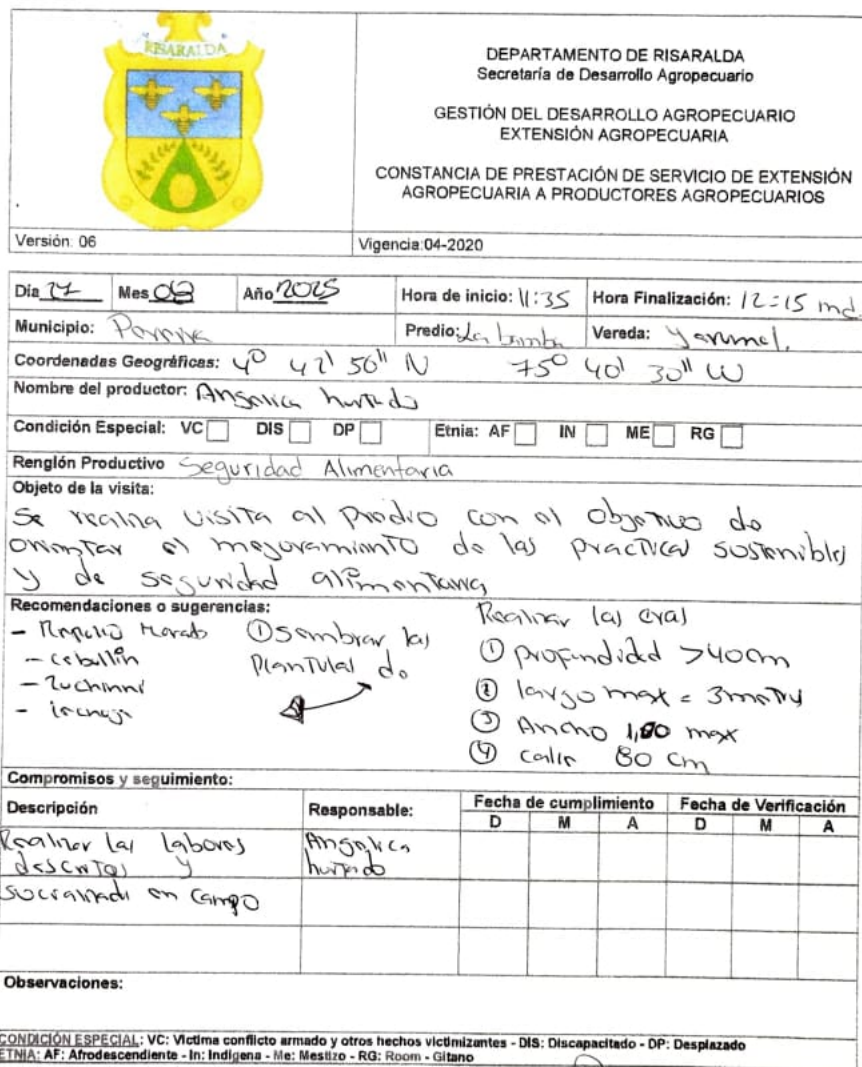 RISARALDA
DEPARTAMENTO DE RISARALDA
Secretaría de Desarrollo Agropecuario
GESTIÓN DEL DESARROLLO AGROPECUARIO
EXTENSIÓN AGROPECUARIA
CONSTANCIA DE PRESTACIÓN DE SERVICIO DE EXTENSIÓN
AGROPECUARIA A PRODUCTORES AGROPECUARIOS
Versión: 06 Vigencia:04-2020
Día Mes Año 2025 Hora de inicio: 11:35 Hora Finalización: 12:15 md.
Municipio: Predio: La bamba Vereda: Yarumal.
Coordenadas Geográficas: 4° 42' 56" N 75° 40' 30" W
Nombre del productor: Angelica hurtado
Condición Especial: VC DIS DP Etnia: AF IN ME RG
Renglón Productivo Seguridad Alimentaria
Objeto de la visita:
Se realiza visita al predio con el objetivo de
orientar el mejoramiento de las practicas sostenibles
y de seguridad alimentaria
Recomendaciones o sugerencias:
- Repollo Morado
- cebollin
- zuchinni
-
① sembrar las
plantulas de
Realizar las eras
① profundidad >40cm
② largo max = 3 metros
③ Ancho 1,80 max
④ calle 80 cm
Compromisos y seguimiento:
Descripción Responsable: Fecha de cumplimiento Fecha de Verificación
D M A D M A
Realizar las labores Angelica
descritas y hurtado
en campo
Observaciones:
CONDICIÓN ESPECIAL: VC: Victima conflicto armado y otros hechos victimizantes - DIS: Discapacitado - DP: Desplazado
ETNIA: AF: Afrodescendiente - In: Indigena - Me: Mestizo - RG: Room - Gitano